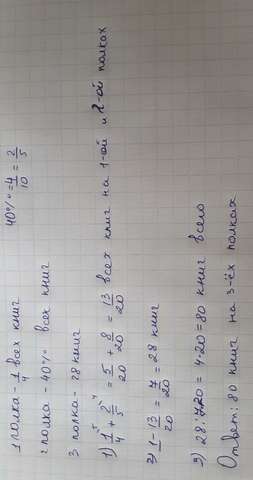 1 полка - 1/4 всех книг 40% = 4/10 = 2/5
2 полка - 40% всех книг
3 полка - 28 книг
1) 1/4 ⁵ + 2/5 ⁴ = 5/20 + 8/20 = 13/20 всех книг на 1-ой и 2-ой полках
2) 1 - 13/20 = 7/20 = 28 книг
3) 28:7·20 = 4·20 = 80 книг всего
Ответ: 80 книг на 3-ёх полках